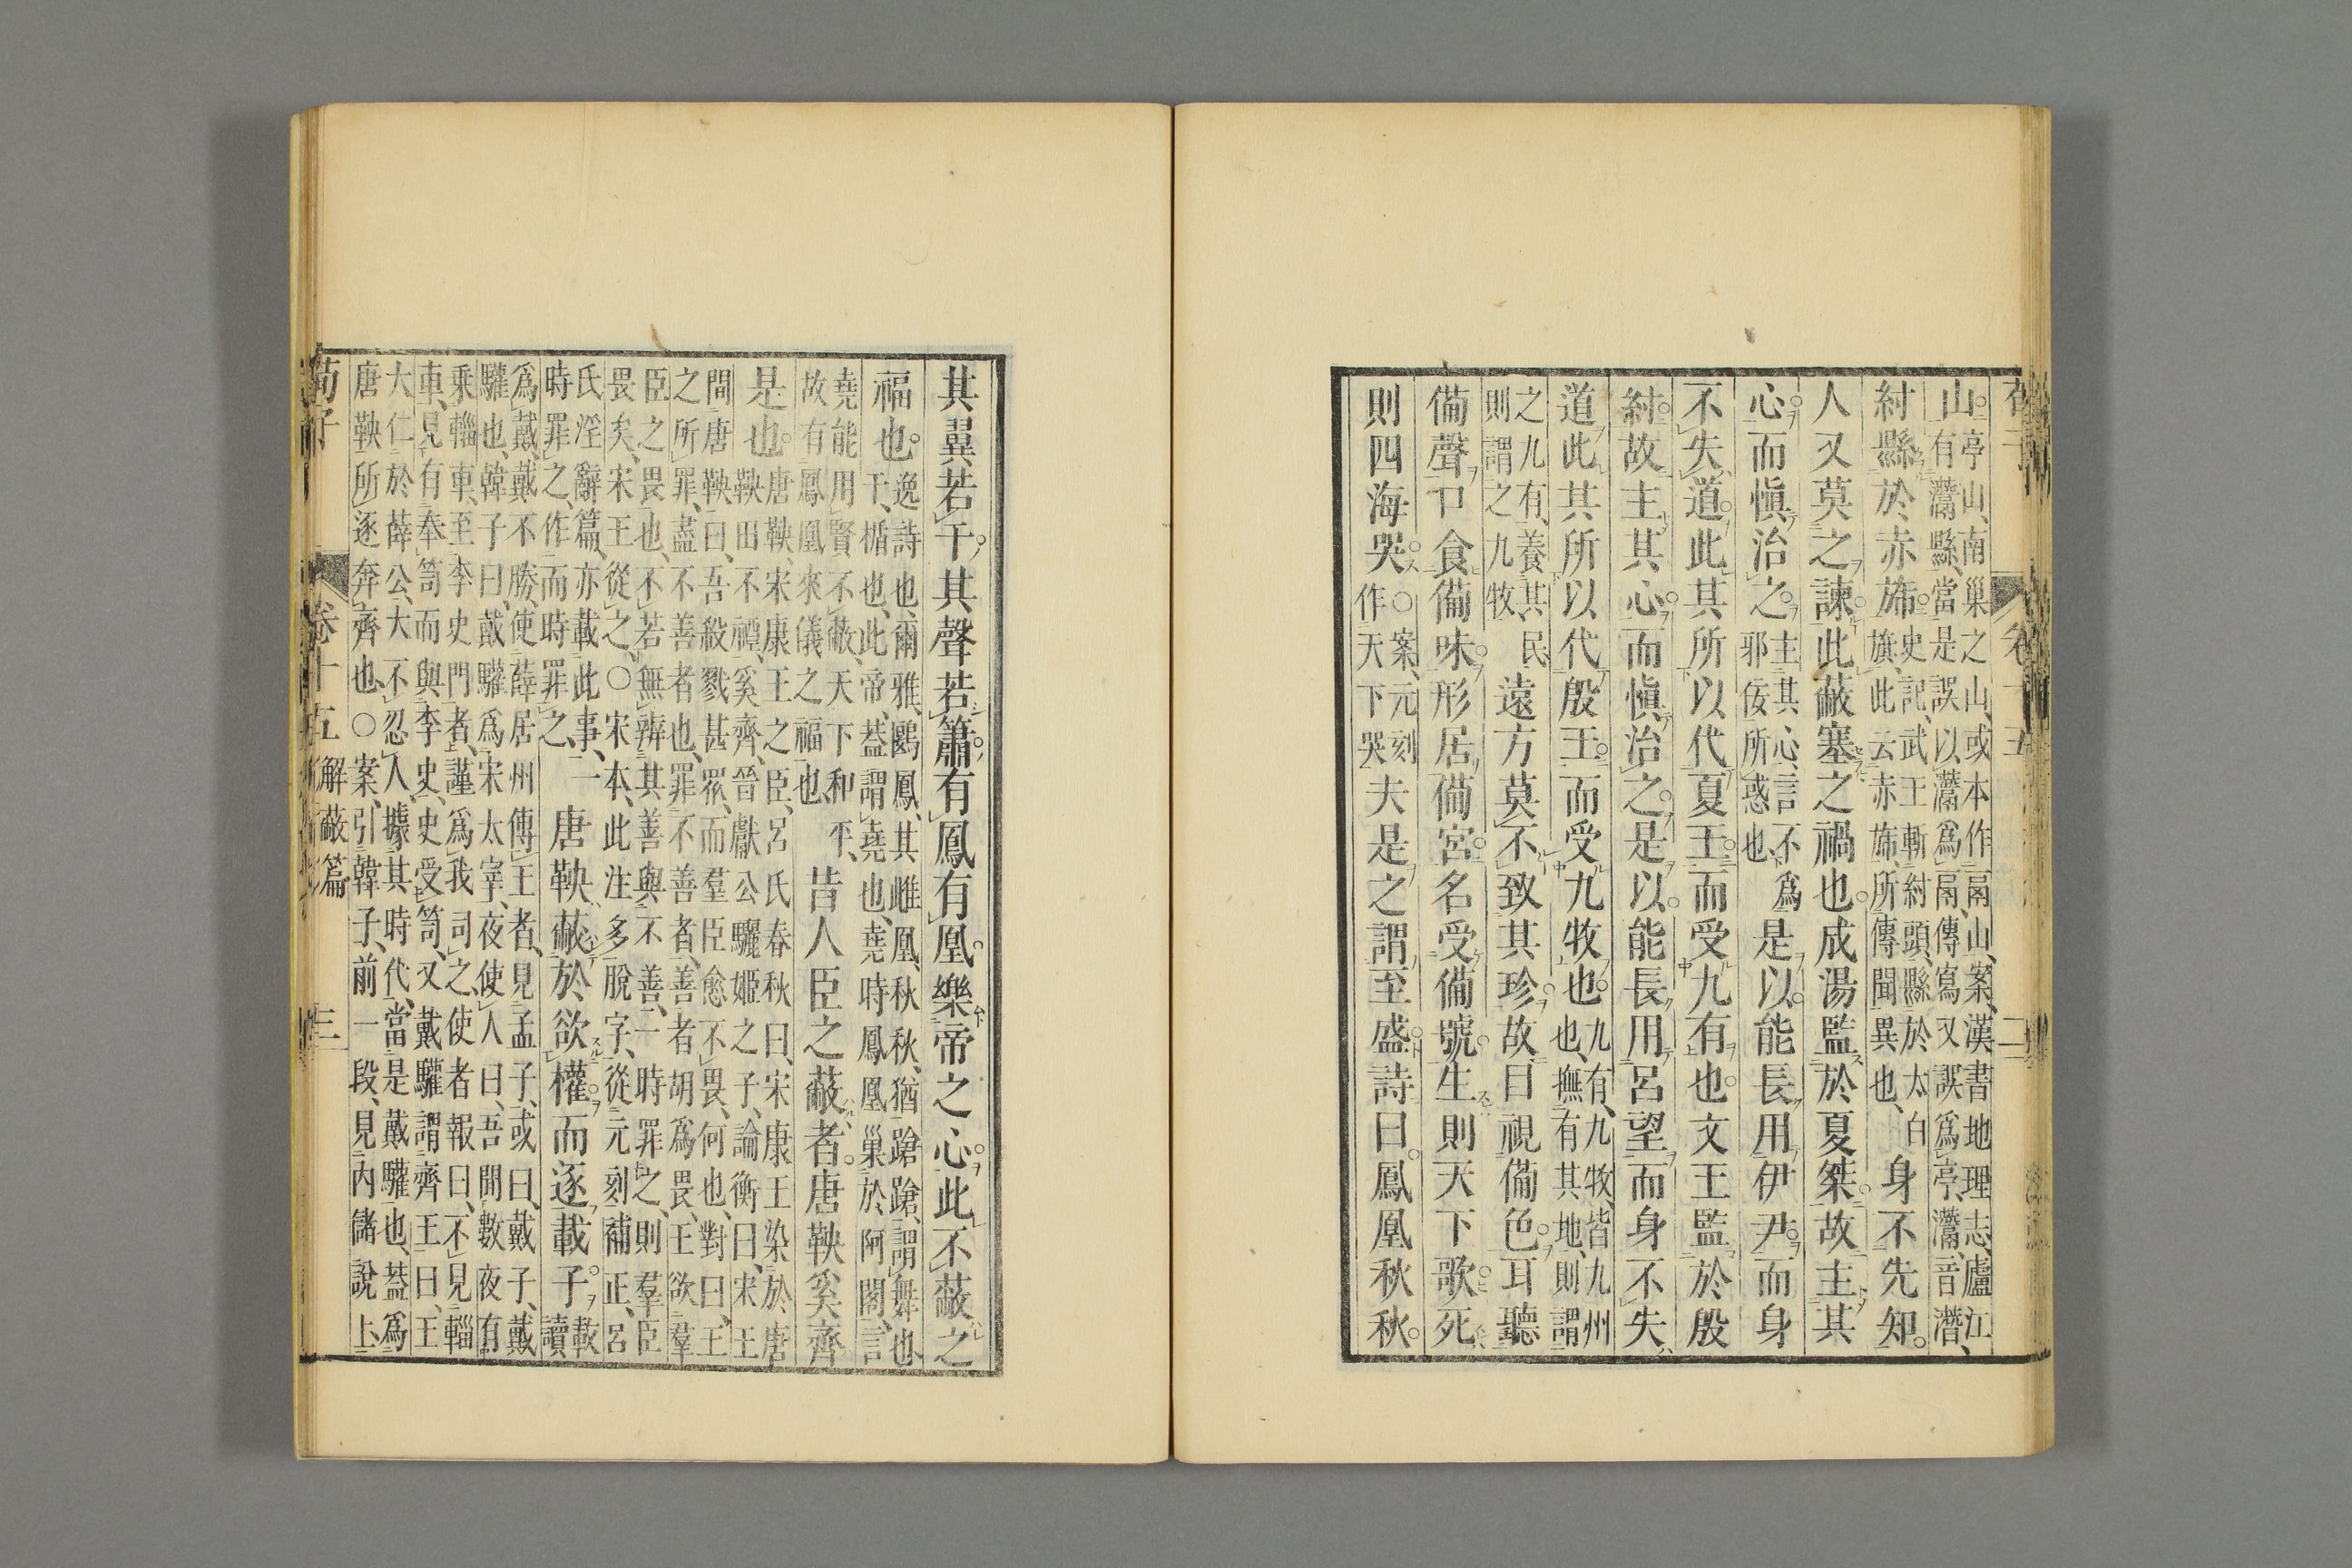 荀子 卷十五 二
山。亭山、南巢之山、或本作鬲山、案、漢書地理志、廬江、
有灊縣、當是誤以灊爲鬲、傳寫又誤爲亭、灊、音潛、
紂縣於赤旆。史記、武王斬紂頭、縣於太白
旗、此云赤旆、所傳聞異也、身不先知。
人又莫之諫。此蔽塞之禍也。成湯監於夏桀。故主其
心。而愼治之。主其心、言不爲
邪佞所惑也、是以。能長用伊尹。而身
不失道。此其所以代夏王。而受九有也。文王監於殷
紂。故主其心。而愼治之。是以。能長用呂望。而身不失
道此其所以代殷王。而受九牧也。九有、九牧、皆九州
也、撫有其地、則謂
之九有、養其民
則謂之九牧、遠方莫不致其珍。故目視備色。耳聽
備聲。口食備味。形居備宮。名受備號。生則天下歌。死
則四海哭。○案、元刻
作天下哭夫是之謂至盛。詩曰。鳳凰秋秋。
其翼若干。其聲若簫。有鳳有凰。樂帝之心。此不蔽之
福也。逸詩也、爾雅、鷗鳳、其雌凰、秋秋、猶蹌蹌、謂舞也、
干、楯也、此帝、葢謂堯也、堯時鳳凰巢於阿閣、言
堯能用賢不蔽、天下和平、
故有鳳凰來儀之福也、昔人臣之蔽者。唐鞅奚齊
是也。唐鞅、宋康王之臣、呂氏春秋曰、宋康王染於唐
鞅田不禋、奚齊、晉獻公驪姬之子、論衡曰、宋王
間唐鞅曰、吾殺戮甚眾、而羣臣愈不畏、何也、對曰、王
之所罪、盡不善者也、罪不善者、善者胡爲畏、王欲羣
臣之畏也、不若無辨其善與不善、一時罪之、則羣臣
畏矣、宋王從之、○宋本、此注多脫字、從元刻補正、呂
氏淫辭篇、亦載此事、一
時罪之、作而時罪之、唐鞅蔽於欲權。而逐載子。載
讀
爲戴、戴不勝、使薛居州傅王者、見孟子、或曰、戴子、戴
驩也、韓子曰、戴驩爲宋太宰、夜使人曰、吾聞數夜有
乘轀車、至李史門者、謹爲我司之、使者報曰、不見轀
車、見有奉笥而與李史、史受笥、又戴驩謂齊王曰、王
大仁於薛公、大不忍人、據其時代、當是戴驩也、葢爲
唐鞅所逐奔齊也、○案、引韓子、前一段、見內儲說上、
荀子 卷十五 解蔽篇 三